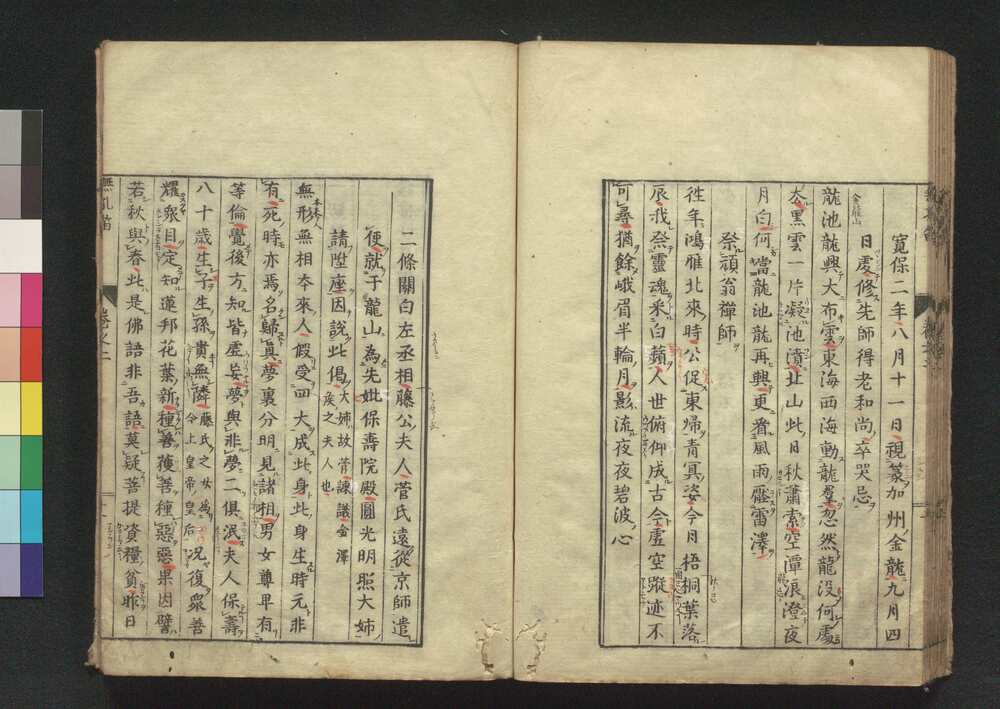 寬保二年八月十一日視篆加州金龍九月四
日處修先師得老和尚卒哭忌
金龍山
龍池龍興大布雲東海西海動龍羣忽然龍沒何處
去黑雲一片凝池濆北山此日秋蕭索空潭浪澄夜
月白何當龍池龍再興更看風雨靂雷澤
祭頑翁禪師
徃年鴻雁北來時公促東歸青冥姿今月梧桐葉落
辰我祭靈魂釆白蘋人世俯仰成古今虛空蹤迹不
可尋猶餘峨眉半輪月影流夜夜碧波心
二條關白左丞相藤公夫人菅氏遠從京師遣
便就于龍山為先妣保壽院殿圓光明照大姊
請陞座因說此偈大姊故菅諫議金澤
矦之夫人也
無形無相本來人假受四大成此身此身生時元非
有死時亦焉名歸真夢裏分明見諸祖男女尊卑有
等倫覺後方知皆虛妄夢與非夢二俱泯夫人保壽
八十歲生子生孫貴無隣藤氏之女為
今上皇帝皇后況復衆善
耀衆目定知蓮邦花葉新種善獲善種惡惡果因譬
若秋與春此是佛語非吾語莫疑菩提資糧貧昨日
無孔笛
卷之二